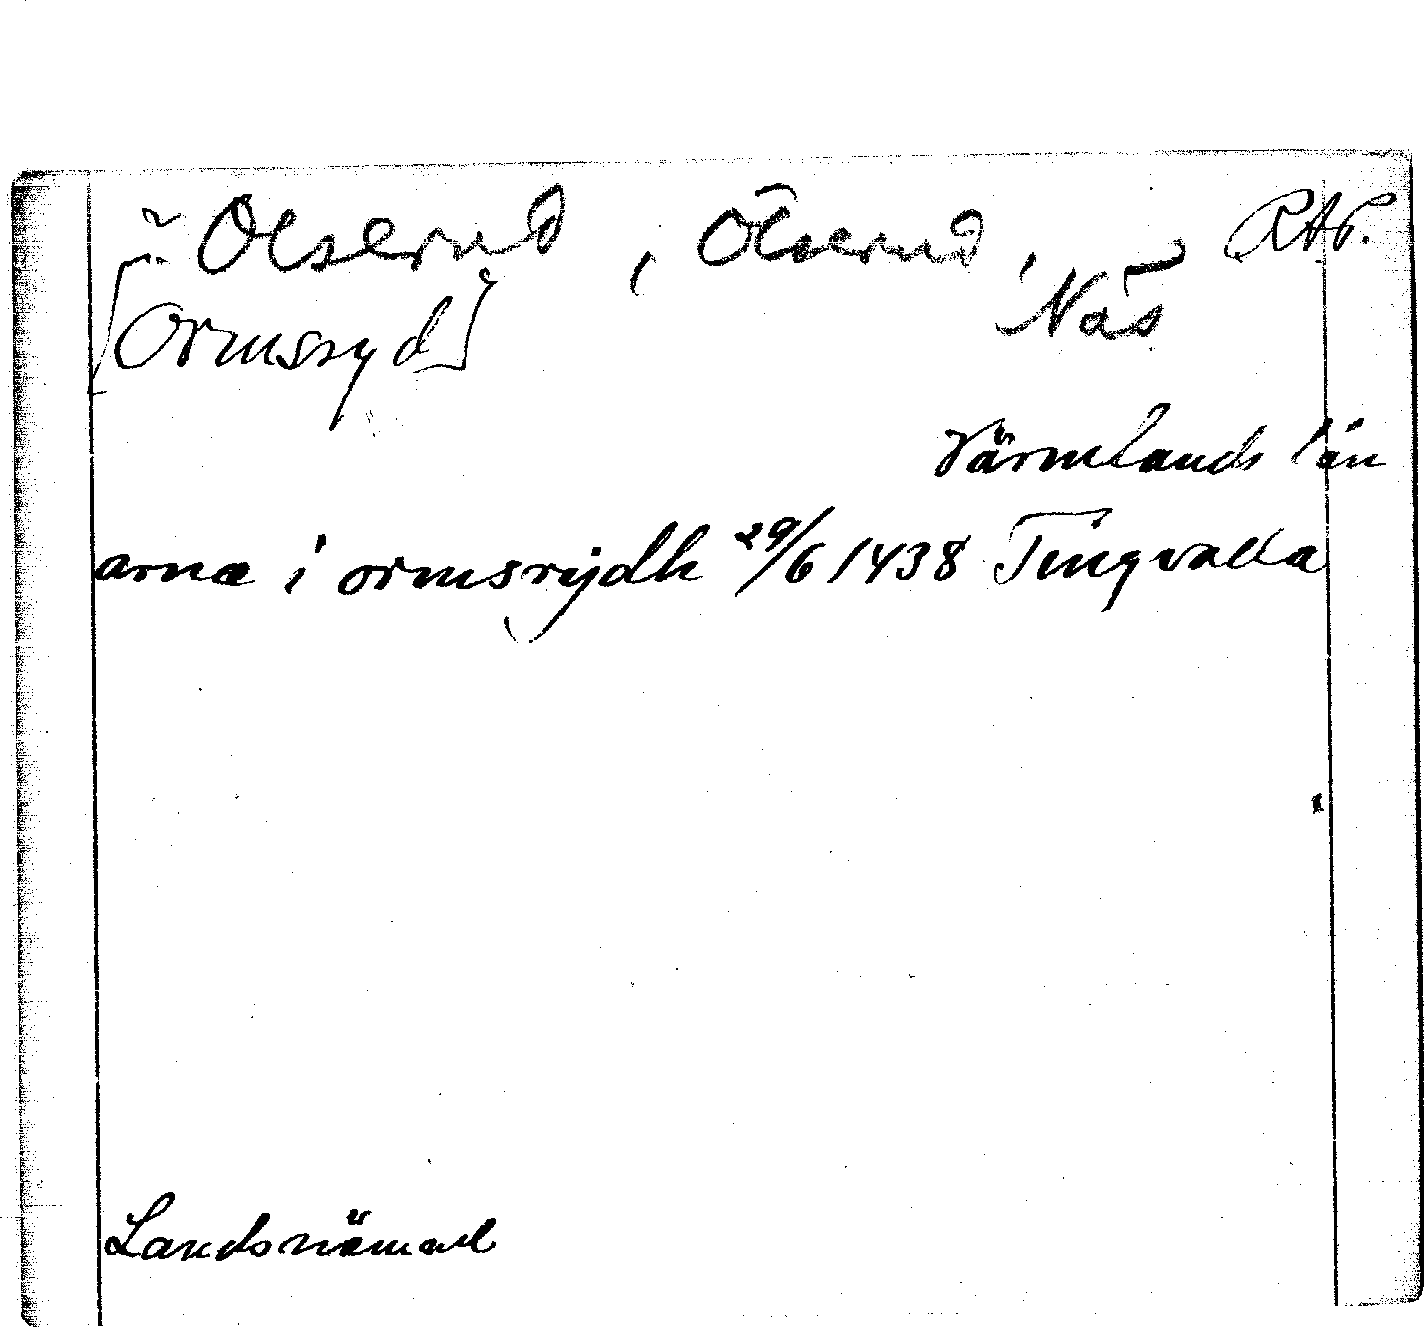 ~ Olserud, Ölserud, RAP.
[Ormsryd] Näs
Värmlands län
arnæ i ormsrydh 29/6 1438 Tingvalla
Landsnämnd